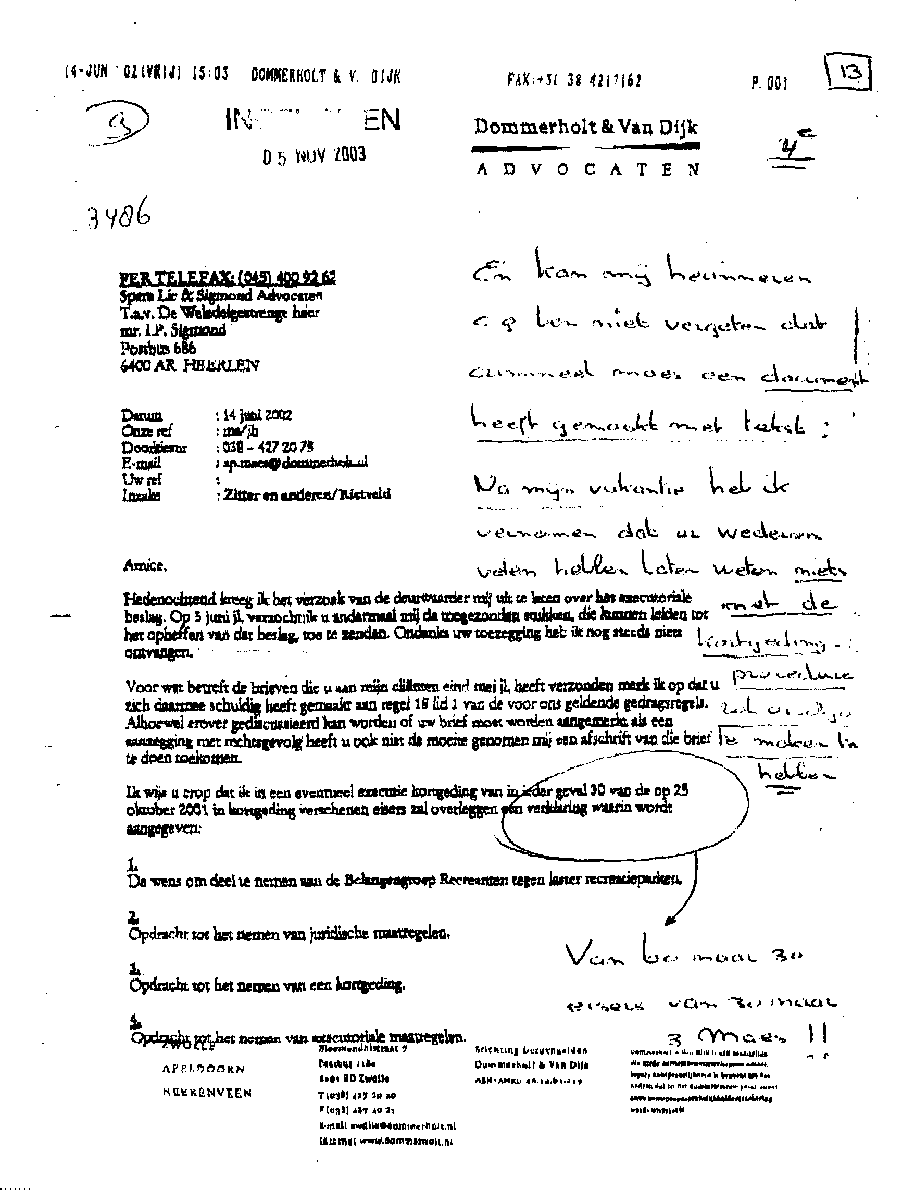 14-JUN '02(VRIJ) 15:03 DOMMERHOLT & V. DIJK FAX:+31 38 4217162 P. 001
13
IN EN
05 NOV 2003
Dommerholt & Van Dijk
ADVOCATEN
4e
3486
PER TELEFAX: (045) 400 92 62
Spera Lic & Sigmond Advocaten
T.a.v. De Weledelgestrenge heer
mr. I.P. Sigmond
Postbus 686
6400 AR HEERLEN
Datum : 14 juni 2002
Onze ref : ma/jh
Doorkiesnr : 038 - 427 20 75
E-mail : ap.maes@dommerholt.nl
Uw ref :
Inzake : Zitter en anderen/Rietveld
En kan mij herinneren
c.q ben niet vergeten dat
maes een document
heeft gemaakt met tekst :
Na mijn vakantie heb ik
vernomen dat uw wederom
velen hebben laten weten niets
met de
kortgeding-
procedure
te maken te
hebben
Amice,
Hedenochtend kreeg ik het verzoek van de deurwaarder mij uit te laten over het executoriale
beslag. Op 5 juni jl. verzocht ik u andermaal mij de toegezonden stukken, die kunnen leiden tot
het opheffen van dat beslag, toe te zenden. Ondanks uw toezegging heb ik nog steeds niets
ontvangen.
Voor wat betreft de brieven die u aan mijn cliënten eind mei jl. heeft verzonden merk ik op dat u
zich daarmee schuldig heeft gemaakt aan regel 18 lid 1 van de voor ons geldende gedragsregels.
Alhoewel erover gediscussieerd kan worden of uw brief moet worden aangemerkt als een
aanzegging met rechtsgevolg heeft u ook niet de moeite genomen mij een afschrift van die brief
te doen toekomen.
Ik wijs u erop dat ik in een eventueel executie kortgeding van in ieder geval 30 van de op 25
oktober 2001 in kortgeding verschenen eisers zal overleggen een verklaring waarin wordt
aangegeven:
1.
De wens om deel te nemen aan de Belangengroep Recreanten tegen laster recreatieparken.
2.
Opdracht tot het nemen van juridische maatregelen.
3.
Opdracht tot het nemen van een kortgeding.
Opdracht tot het nemen van executoriale maatregelen.
Van 60 maar 30
eisers van 30 maar
3 Maes !!
ZWOLLE
APELDOORN
HEERENVEEN
8001 BD Zwolle
T (038) 427 20 20
F (038) 427 20 21
E-mail zwolle@dommerholt.nl
Internet www.dommerholt.nl
Stichting Derdengelden
Dommerholt & Van Dijk